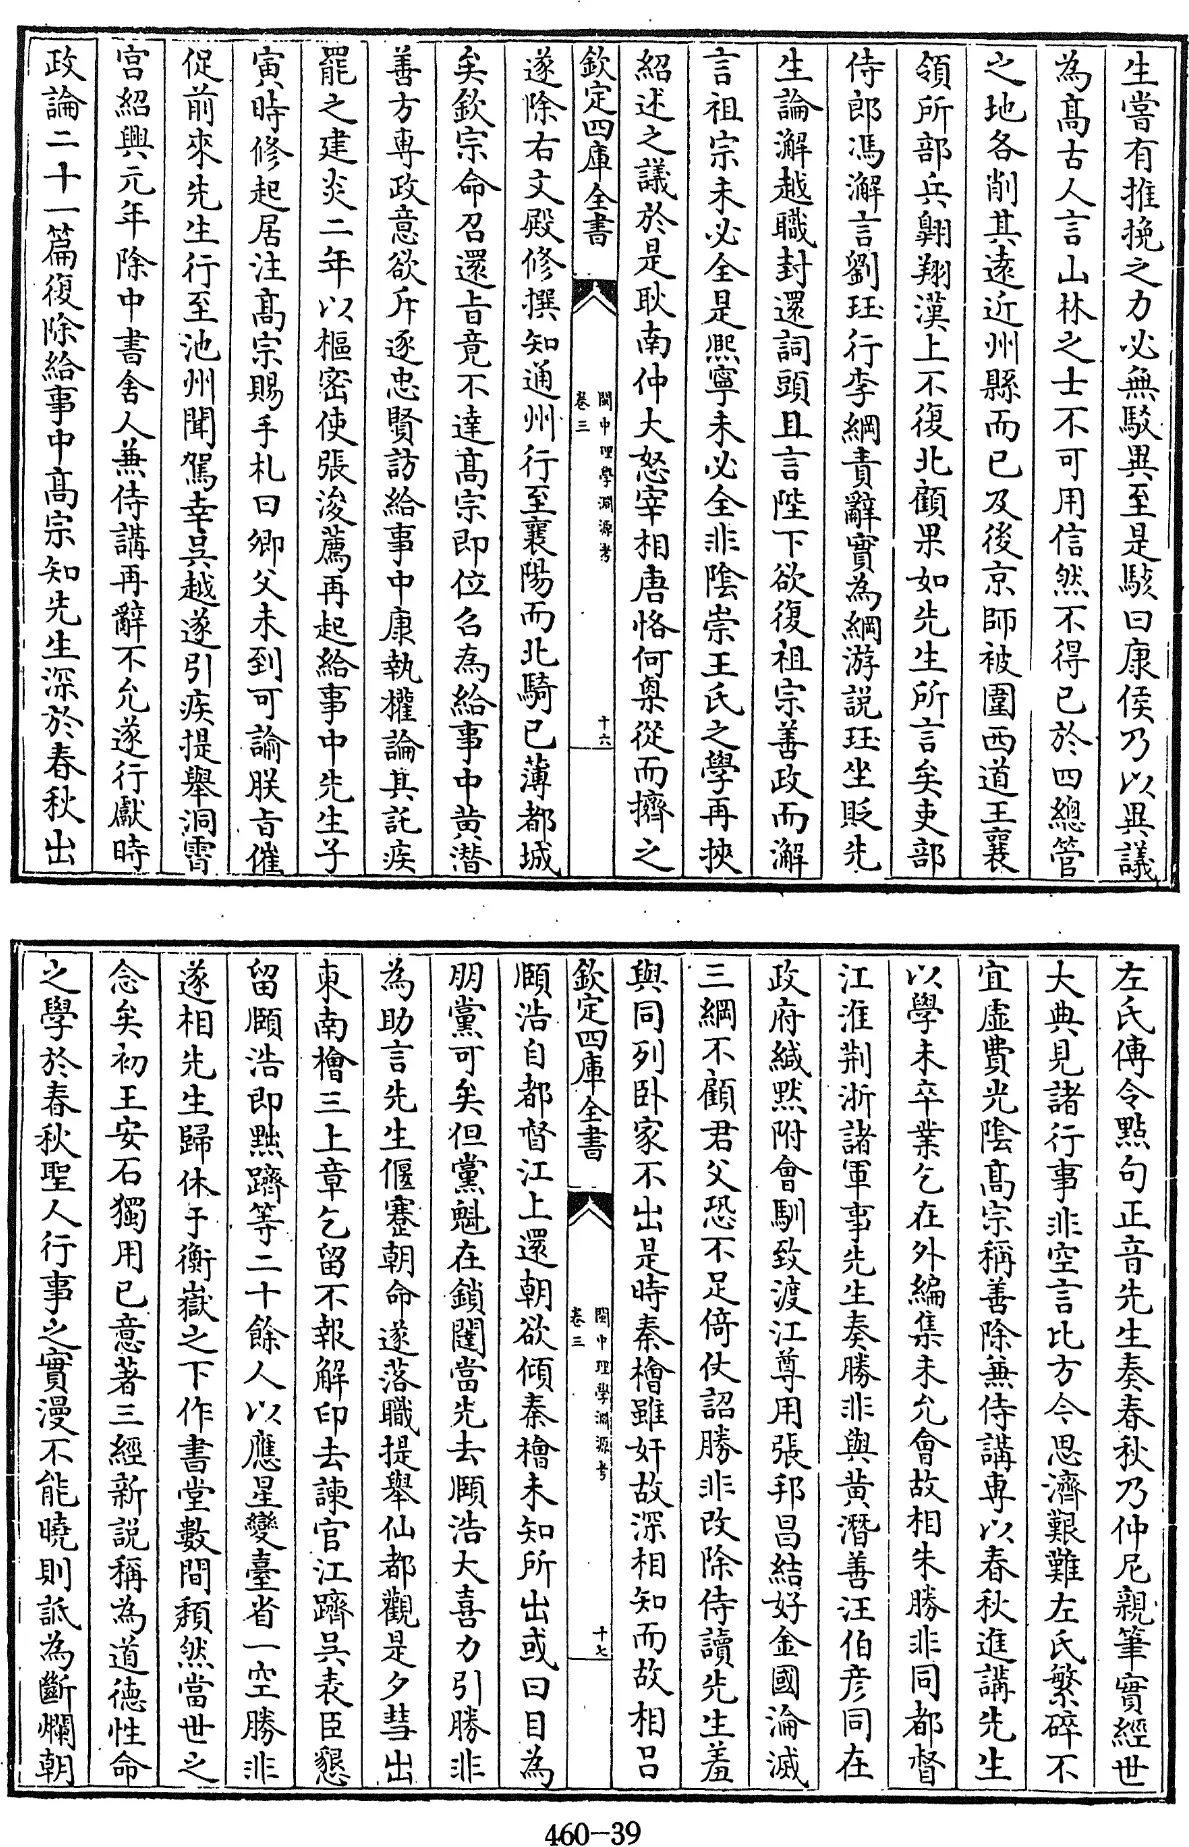 生嘗有推挽之力必無駁異至是駭曰康侯乃以異議
為髙古人言山林之士不可用信然不得已於四總管
之地各削其逺近州縣而已及後京師被圍西道王襄
領所部兵翺翔漢上不復北顧果如先生所言矣吏部
侍郎馮澥言劉珏行李綱責辭實為綱游說珏坐貶先
生論澥越職封還詞頭且言陛下欲復祖宗善政而澥
言祖宗未必全是熙寧未必全非隂崇王氏之學再挾
紹述之議於是耿南仲大怒宰相唐恪何㮚從而擠之
欽定四庫全書
閩中理學淵源考
卷三
十六
遂除右文殿修撰知通州行至襄陽而北騎已薄都城
矣欽宗命召還㫖竟不達髙宗即位召為給事中黄潛
善方専政意欲斥逐忠賢訪給事中康執權論其託疾
罷之建炎二年以樞密使張浚薦再起給事中先生子
寅時修起居注髙宗賜手札曰卿父未到可諭朕㫖催
促前來先生行至池州聞駕幸吳越遂引疾提舉洞霄
宫紹興元年除中書舍人兼侍講再辭不允遂行獻時
政論二十一篇復除給事中髙宗知先生深於春秋出
左氏傳令㸃句正音先生奏春秋乃仲尼親筆實經世
大典見諸行事非空言比方今思濟艱難左氏繁碎不
宜虛費光隂髙宗稱善除兼侍講専以春秋進講先生
以學未卒業乞在外編集未允會故相朱勝非同都督
江淮荆浙諸軍事先生奏勝非與黄潛善汪伯彦同在
政府緘黙附㑹馴致渡江尊用張邦昌結好金國淪滅
三綱不顧君父恐不足倚仗詔勝非改除侍讀先生羞
與同列卧家不出是時秦檜雖奸故深相知而故相吕
欽定四庫全書
閩中理學淵源考
卷三
十七
頤浩自都督江上還朝欲傾秦檜未知所出或曰目為
朋黨可矣但黨魁在鎖闥當先去頤浩大喜力引勝非
為助言先生偃蹇朝命遂落職提舉仙都觀是夕彗出
東南檜三上章乞留不報解印去諫官江躋吳表臣懇
留頤浩即黜躋等二十餘人以應星變臺省一空勝非
遂相先生歸休于衡嶽之下作書堂數間頽然當世之
念矣初王安石獨用已意著三經新說稱為道德性命
之學於春秋聖人行事之實漫不能曉則詆為斷爛朝
460-39